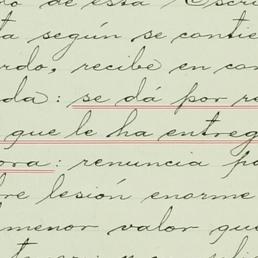 do de esta Escri
ta según se contie
rdo, recibe en con
da: se dá por re
que le ha entreg
ora: renuncia po
re lesión enorme
menor valor que